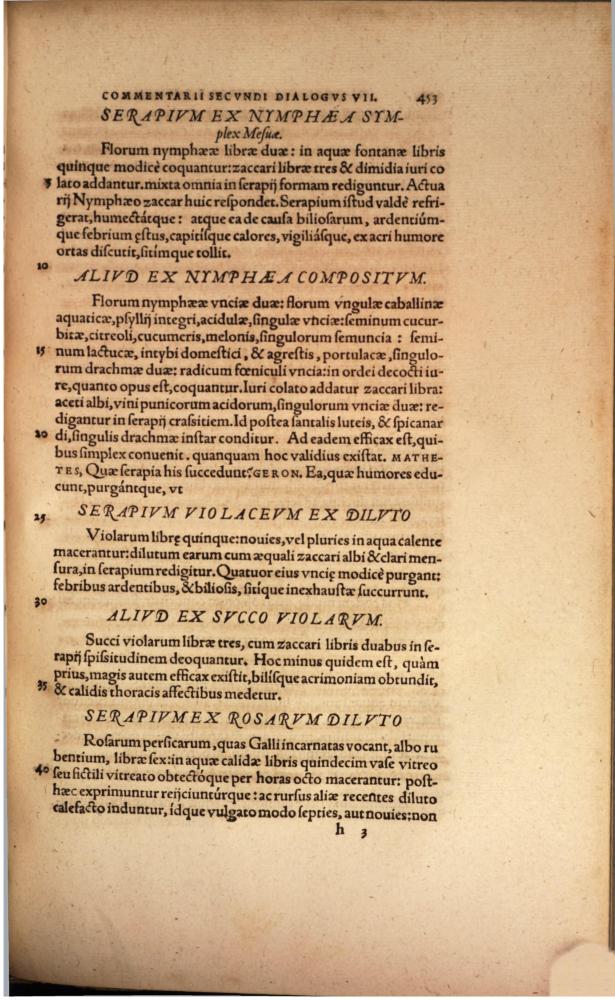 COMMENTARII SECVNDI DIALOGVS VII. 453
SERAPIVM EX NYMPHÆA SYM-
plex Mesuæ.
Florum nymphææ libræ duæ: in aquæ fontanæ libris
quinque modicè coquantur: zaccari libræ tres & dimidia iuri co
5 lato addantur. mixta omnia in serapij formam rediguntur. Actua
rij Nymphæo zaccar huic respondet. Serapium istud valdè refri-
gerat, humectátque: atque ea de causa biliosarum, ardentiúm-
que febrium ęstus, capitísque calores, vigiliásque, ex acri humore
ortas discutit, sitímque tollit.
10
ALIVD EX NYMPHÆA COMPOSITVM.
Florum nymphææ vnciæ duæ: florum vngulæ caballinæ
aquaticæ, psyllij integri, acidulæ, singulæ vnciæ: seminum cucur-
bitæ, citreoli, cucumeris, melonis, singulorum semuncia: semi-
15 num lactucæ, intybi domestici, & agrestis, portulacæ, singulo-
rum drachmæ duæ: radicum fœniculi vncia: in ordei decocti iu-
re, quanto opus est, coquantur. Iuri colato addatur zaccari libra:
aceti albi, vini punicorum acidorum, singulorum vnciæ duæ: re-
digantur in serapij crassitiem. Id postea santalis luteis, & spicanar
20 di, singulis drachmæ instar conditur. Ad eadem efficax est, qui-
bus simplex conuenit. quanquam hoc validius existat. MATHE-
TES, Quæ serapia his succedunt? GERON. Ea, quæ humores edu-
cunt, purgántque, vt
25 SERAPIVM VIOLACEVM EX DILVTO
Violarum librę quinque: nouies, vel pluries in aqua calente
macerantur: dilutum earum cum æquali zaccari albi & clari men-
sura, in serapium redigitur. Quatuor eius vncię modicè purgant:
febribus ardentibus, & biliosis, sitique inexhaustæ succurrunt.
30
ALIVD EX SVCCO VIOLARVM.
Succi violarum libræ tres, cum zaccari libris duabus in se-
rapij spissitudinem deoquantur. Hoc minus quidem est, quàm
prius, magis autem efficax existit, bilísque acrimoniam obtundit,
35 & calidis thoracis affectibus medetur.
SERAPIVM EX ROSARVM DILVTO
Rosarum persicarum, quas Galli incarnatas vocant, albo ru
bentium, libræ sex: in aquæ calidæ libris quindecim vase vitreo
40 seu fictili vitreato obtectóque per horas octo macerantur: post-
hæc exprimuntur reijciuntúrque: ac rursus aliæ recentes diluto
calefacto induntur, ídque vulgato modo septies, aut nouies: non
h 3